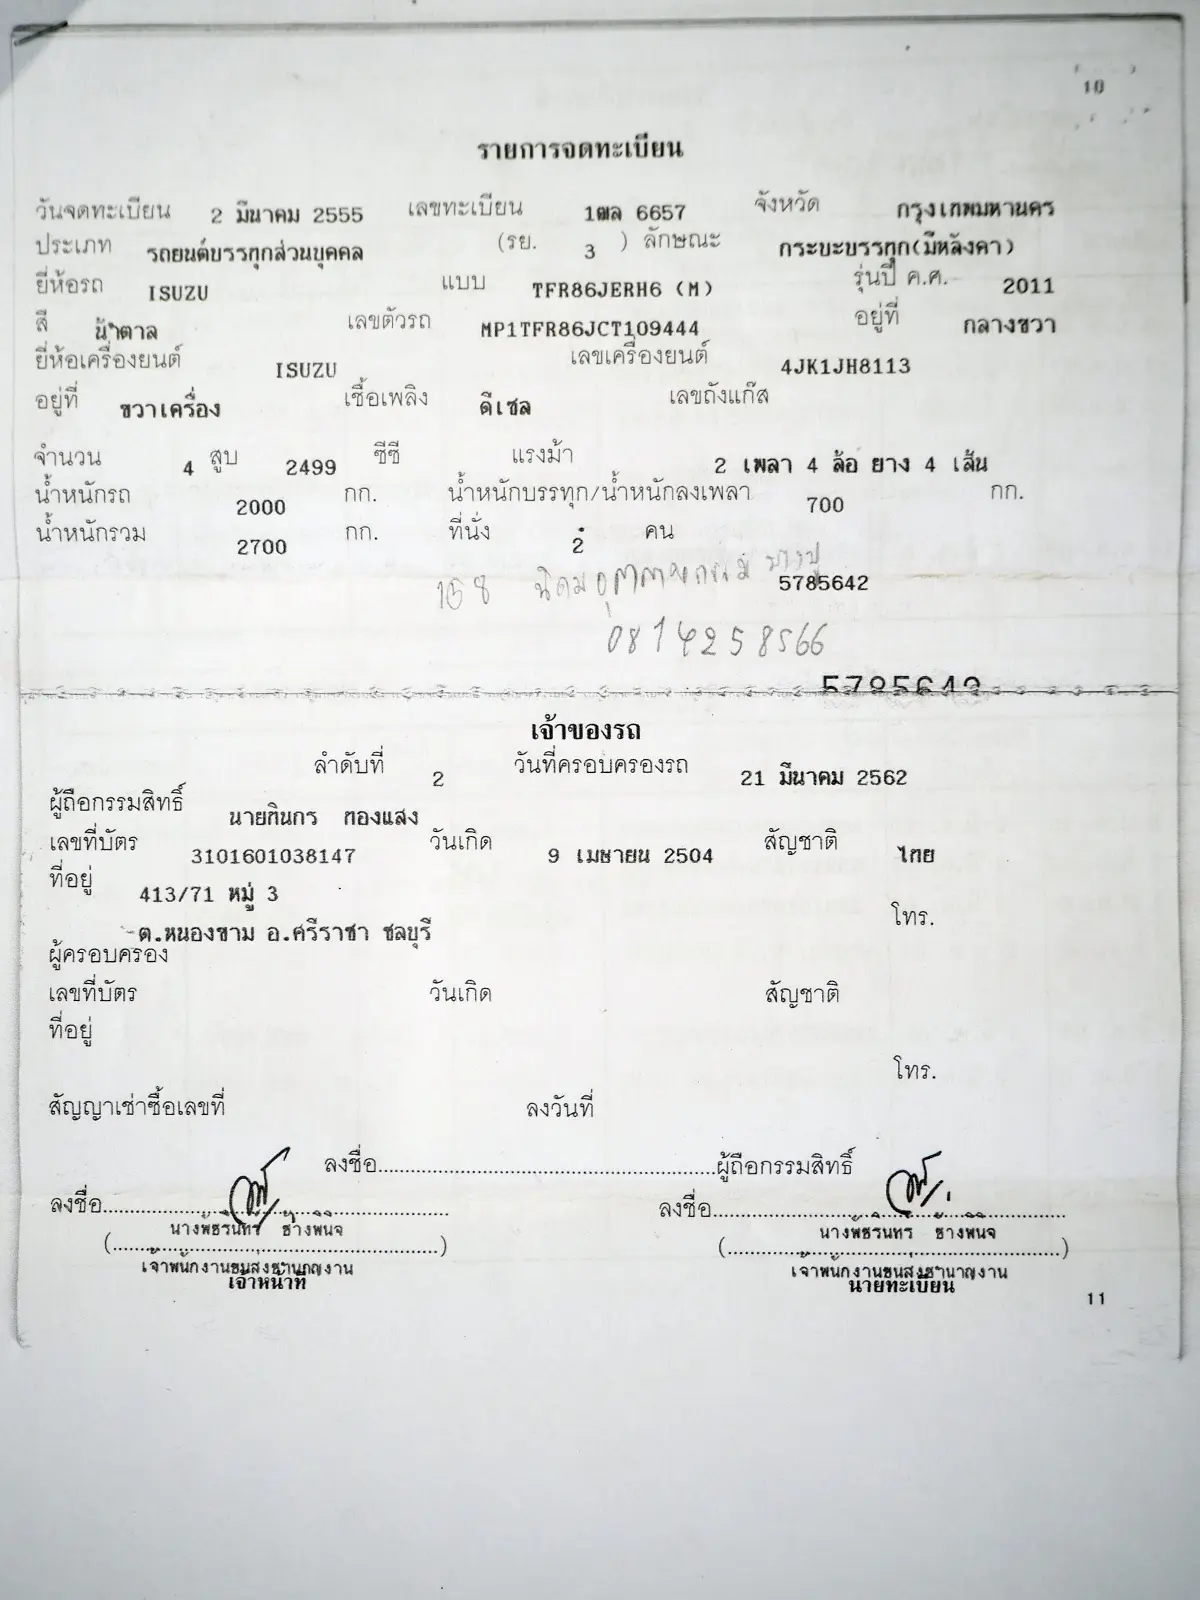 10
รายการจดทะเบียน
วันจดทะเบียน 2 มีนาคม 2555 เลขทะเบียน 1ฒล 6657 จังหวัด กรุงเทพมหานคร
ประเภท รถยนต์บรรทุกส่วนบุคคล (รย. 3 ) ลักษณะ กระบะบรรทุก(มีหลังคา)
ยี่ห้อรถ ISUZU แบบ TFR86JERH6 (M) รุ่นปี ค.ศ. 2011
สี น้ำตาล เลขตัวรถ MP1TFR86JCT109444 อยู่ที่ กลางขวา
ยี่ห้อเครื่องยนต์ ISUZU เลขเครื่องยนต์ 4JK1JH8113
อยู่ที่ ขวาเครื่อง เชื้อเพลิง ดีเซล เลขถังแก๊ส
จำนวน 4 สูบ 2499 ซีซี แรงม้า 2 เพลา 4 ล้อ ยาง 4 เส้น
น้ำหนักรถ 2000 กก. น้ำหนักบรรทุก/น้ำหนักลงเพลา 700 กก.
น้ำหนักรวม 2700 กก. ที่นั่ง 2 คน
158 นิคมอุตสาหกรรม บางปู
5785642
0814258566
5785642
เจ้าของรถ
ลำดับที่ 2 วันที่ครอบครองรถ 21 มีนาคม 2562
ผู้ถือกรรมสิทธิ์ นายทินกร ทองแสง
เลขที่บัตร 3101601038147 วันเกิด 9 เมษายน 2504 สัญชาติ ไทย
ที่อยู่ 413/71 หมู่ 3
ต.หนองขาม อ.ศรีราชา ชลบุรี โทร.
ผู้ครอบครอง
เลขที่บัตร วันเกิด สัญชาติ
ที่อยู่
โทร.
สัญญาเช่าซื้อเลขที่ ลงวันที่
ลงชื่อ..........ผู้ถือกรรมสิทธิ์
ลงชื่อ.......... ลงชื่อ..........
นางพัชรินทร์ ช้างพินิจ นางพัชรินทร์ ช้างพินิจ
(..........) (..........)
เจ้าพนักงานขนส่งชำนาญงาน เจ้าพนักงานขนส่งชำนาญงาน
เจ้าหน้าที่ นายทะเบียน
11